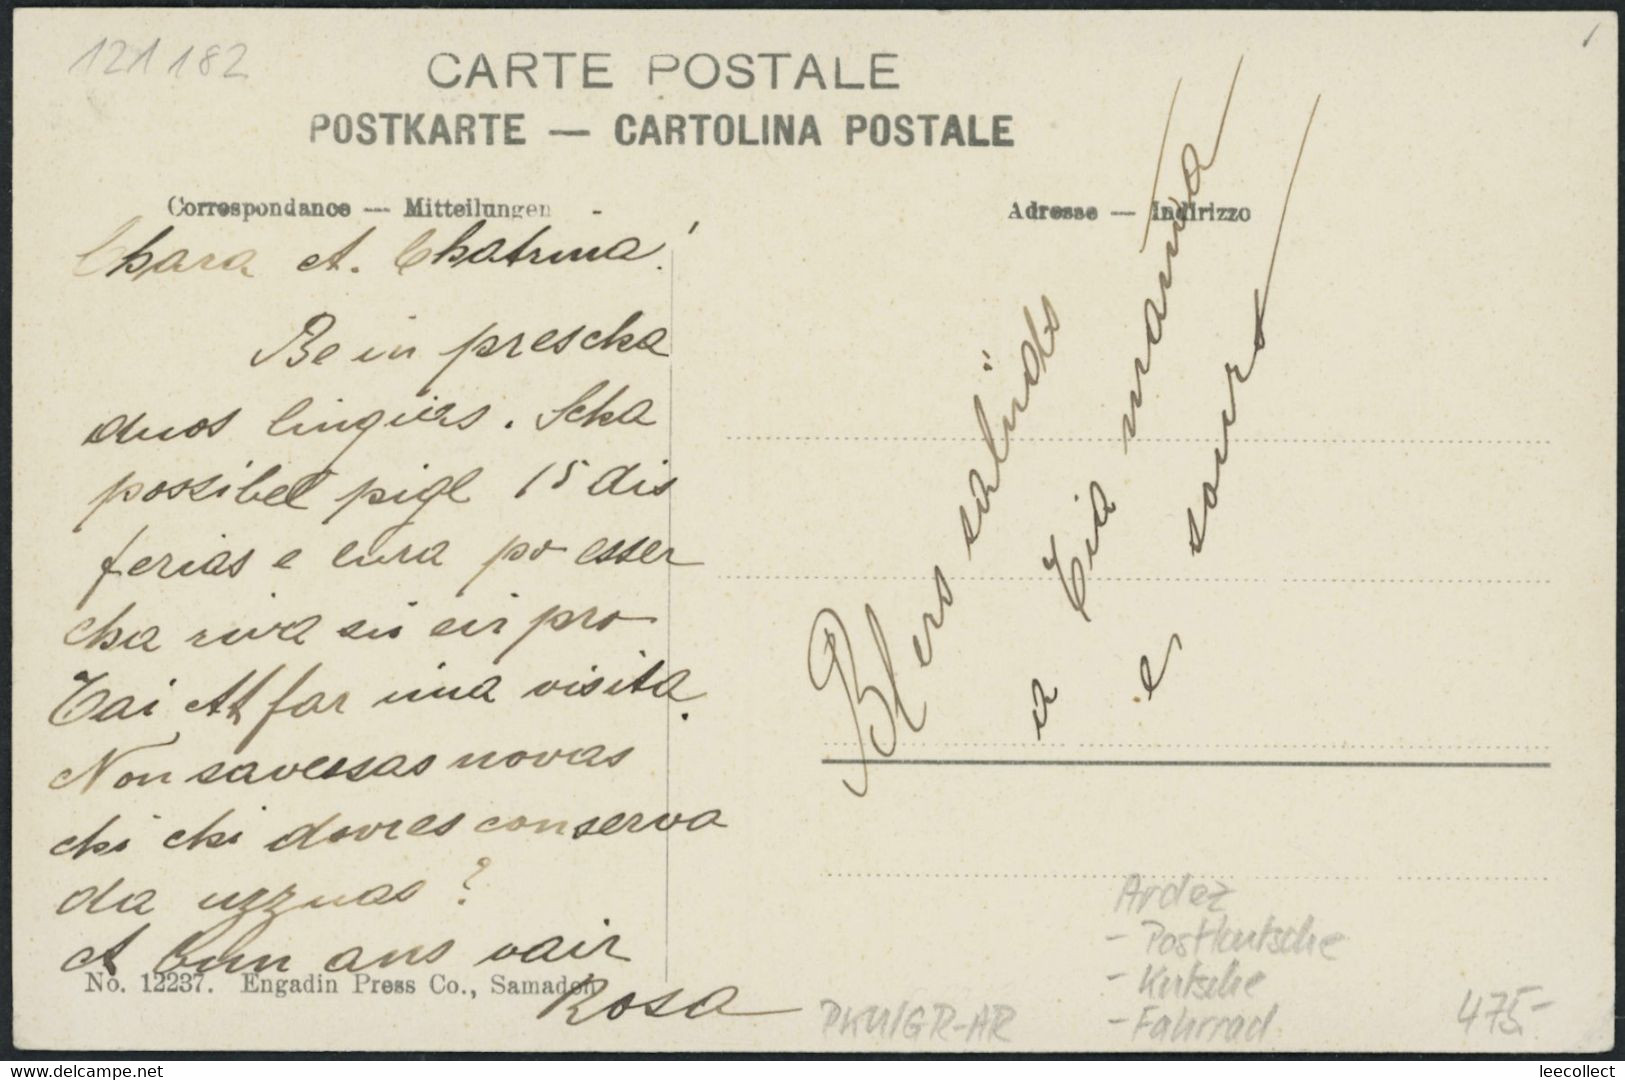 121 182
CARTE POSTALE
POSTKARTE — CARTOLINA POSTALE
Correspondance — Mitteilungen
Adresse — Indirizzo
Chara A. Chatrina!
Be in prescha
duos lingias. Scha
possibel pigl 15 dis
ferias e lura po esser
cha riva eir pro
Tai A far üna visita.
Non savessas novas
chi chi dovres conserva
da uzznas?
A bun ans vair
Rosa
No. 12237. Engadin Press Co., Samaden
Blers salüds
a Tia mama
e sours
Ardez
- Postkutsche
- Kutsche
- Fahrrad
PKU/GR-AR
475.-
delcampe.net
leecollect